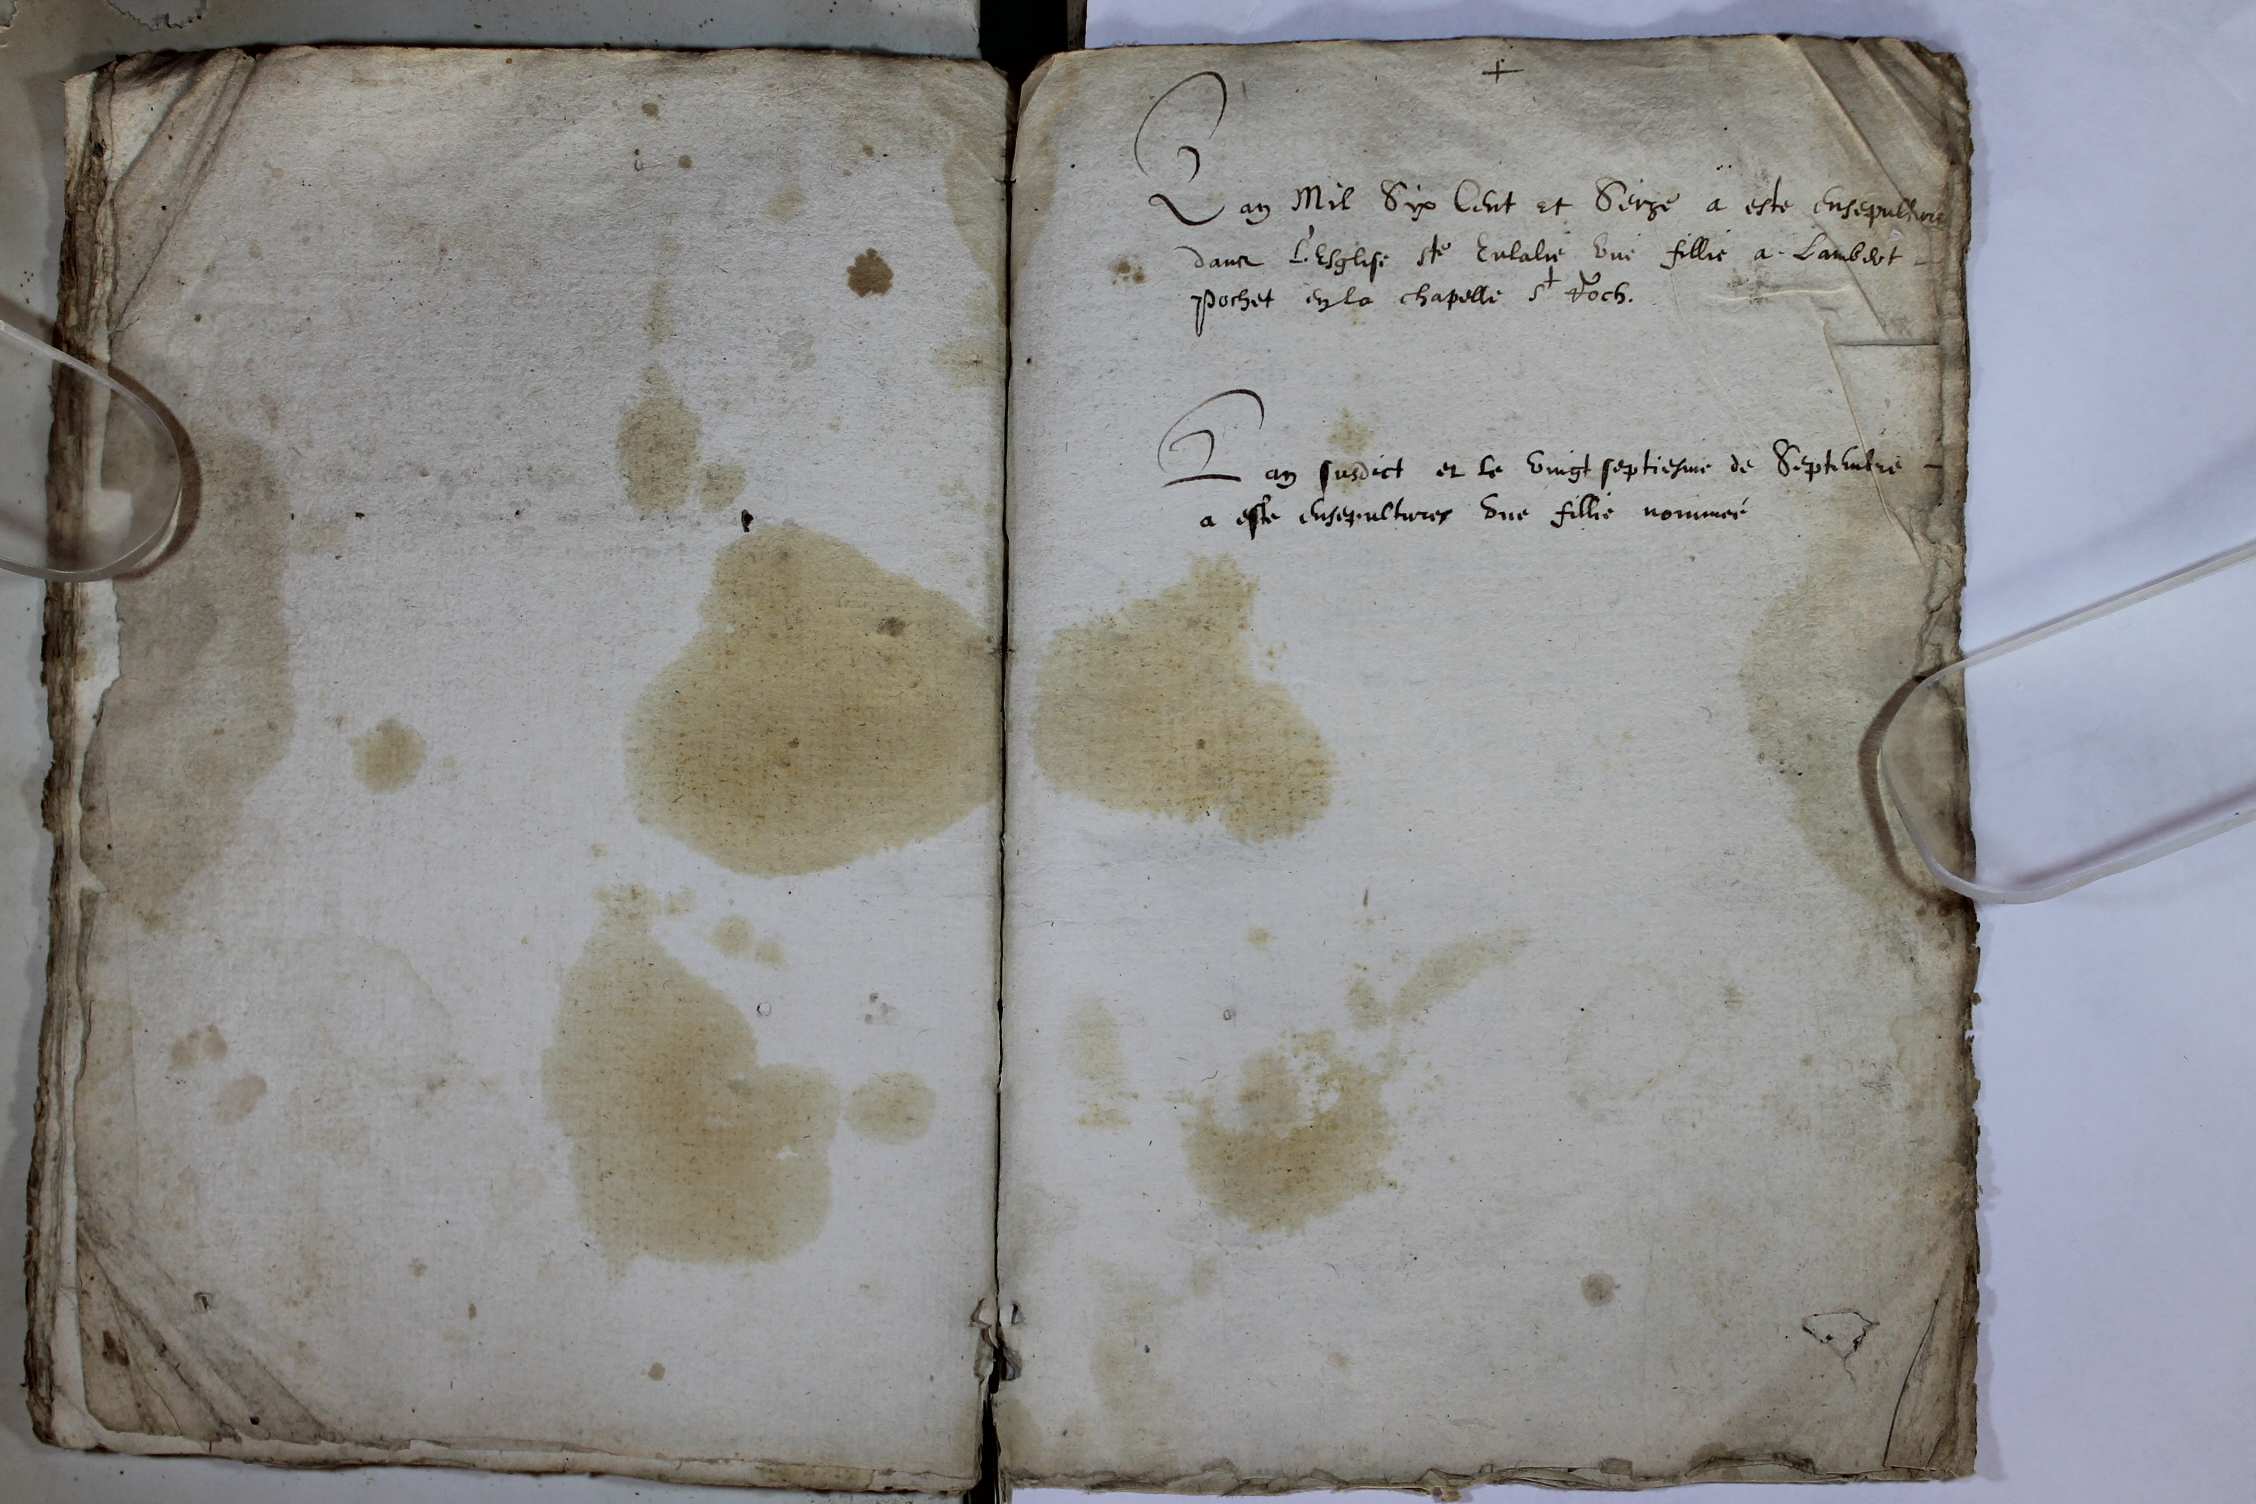 +
L an Mil Six Cent et Seize a este ensepulture
dans L'Esglise ste Eulalie une fillie a Lambert -
Pochet en la chapelle st Roch.
L an susdict et le vingt septiesme de Septembre -
a este ensepulturer une fillie nommeé